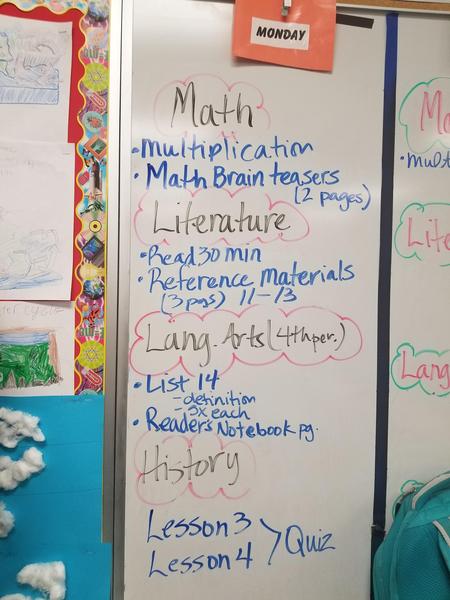 MONDAY
Math
• Multiplication
• Math Brain teasers
(2 pages)
Literature
• Read 30 min
• Reference Materials
(3 pgs) 11-13
Lang. Arts (4th per.)
• List 14
- definition
- 3x each
• Reader's Notebook pg.
History
Lesson 3
Lesson 4 > Quiz
Ma
• Mult
Lite
Lang